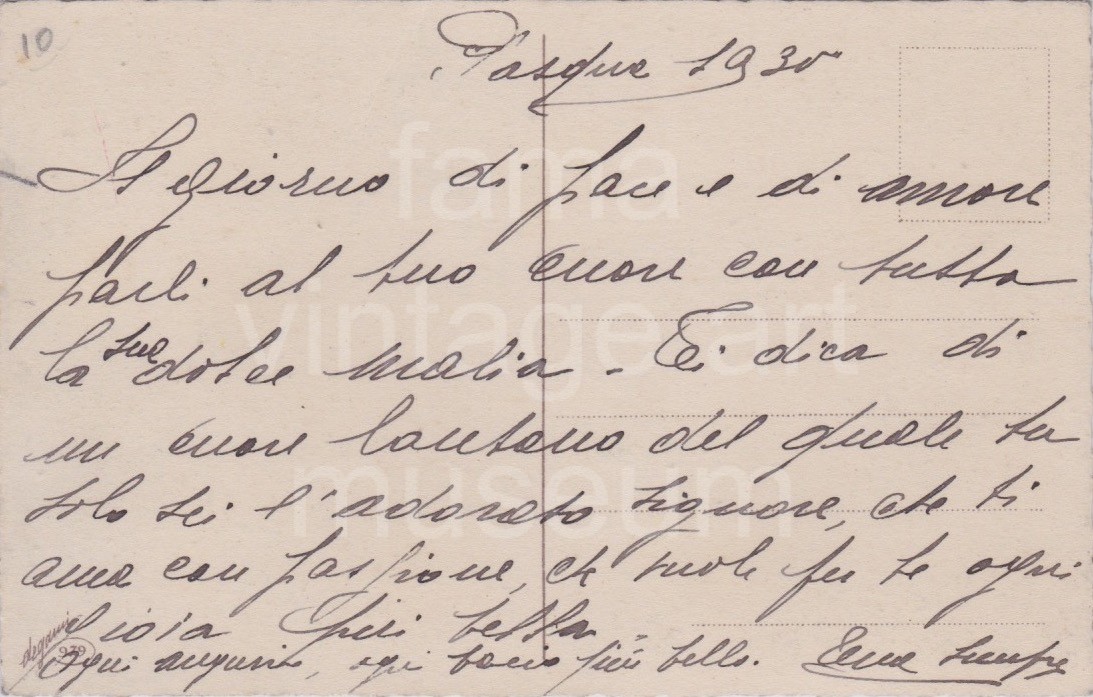 10
Pasqua 1930
Il giorno di pace e di amore
parli al tuo cuore con tutta
la sua dolce malia - Ti dica di
un cuore lontano del quale tu
solo sei l'adorato signore, che ti
ama con passione, che vuole per te ogni
gioia più bella
Ogni augurio, ogni bacio più bello. tua sempre
degami
939
fama
vintage art
museum